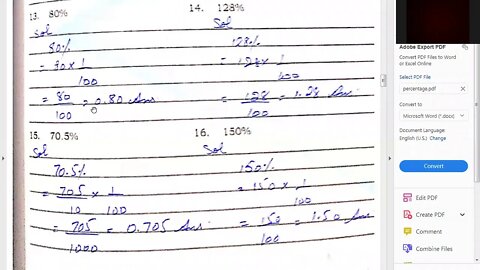 13. 80%
Sol
80%
= 80 × 1
100
= 80 = 0.80 Ans
100
14. 128%
Sol
128%
= 128 × 1
100
= 128 = 1.28 Ans
100
15. 70.5%
Sol
70.5%
= 705 × 1
10 100
= 705 = 0.705 Ans
1000
16. 150%
Sol
150%
= 150 × 1
100
= 150 = 1.50 Ans
100
Adobe Export PDF
Convert PDF Files to Word
or Excel Online
Select PDF File
percentage.pdf
Convert to
Microsoft Word (*.docx)
Document Language:
English (U.S.) Change
Convert
Edit PDF
Create PDF
Comment
Combine Files